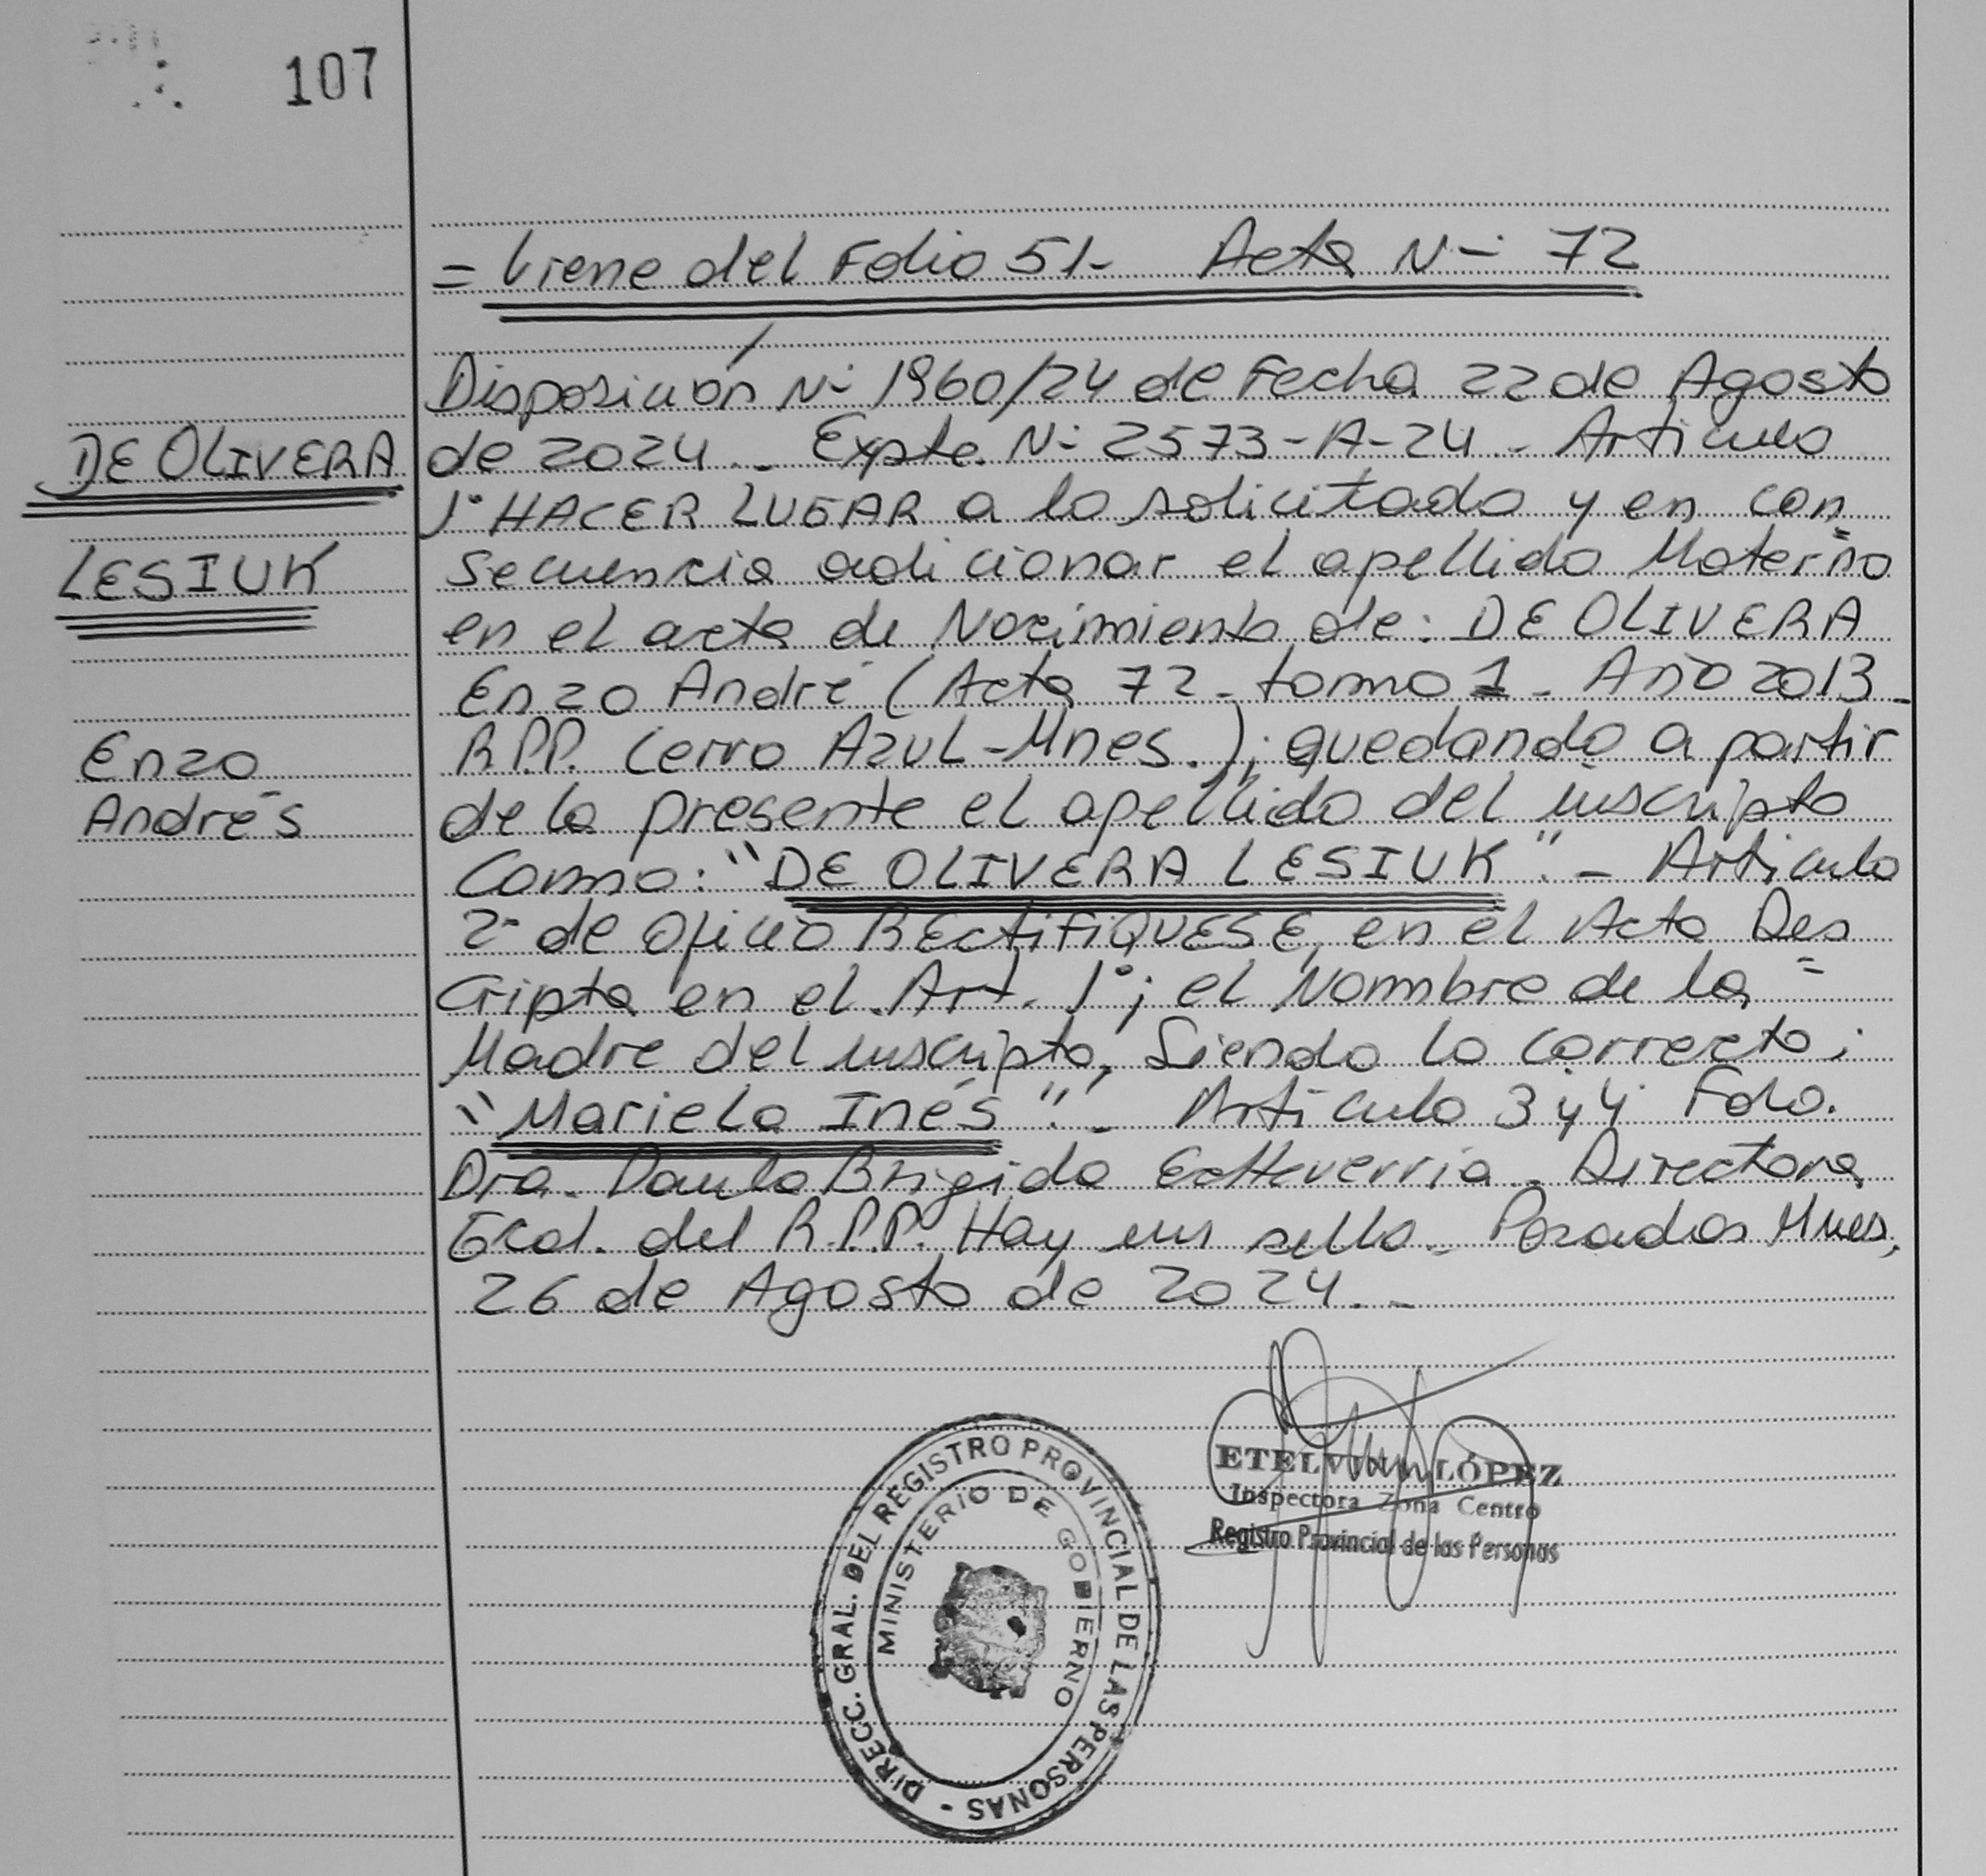 107
= Viene del Folio 51- Acta N- 72
Disposición N- 1960/24 de Fecha 22 de Agosto
de 2024.- Expte. N- 2573-A-24.- Articulo
1° HACER LUGAR a lo solicitado y en con=
secuencia adicionar el apellido Materno
en el acta de Nacimiento de: DE OLIVERA
Enzo André (Acta 72- tomo 1- Año 2013-
R.P.P. Cerro AZUL-Mnes.); quedando a partir
de la presente el apellido del inscripto
Como: "DE OLIVERA LESIUK".- Articulo
2- de Oficio RECtiFiQUESE, en el Acta Des=
Cripta en el Art. 1°; el Nombre de la
Madre del inscripto, Siendo lo correcto:
"Mariela Inés".- Articulo 3 y 4 Fdo.
Dra. Paula Brigida Echeverria. Directora
Gral. del R.P.P. Hay un sello.- Posadas Mnes,
26 de Agosto de 2024.-
DE OLIVERA
LESIUK
Enzo
Andrés
DIRECC. GRAL. DEL REGISTRO PROVINCIAL DE LAS PERSONAS -
MINISTERIO DE GOBIERNO
LÓPEZ
Inspectora Zona Centro
Registro Provincial de las Personas